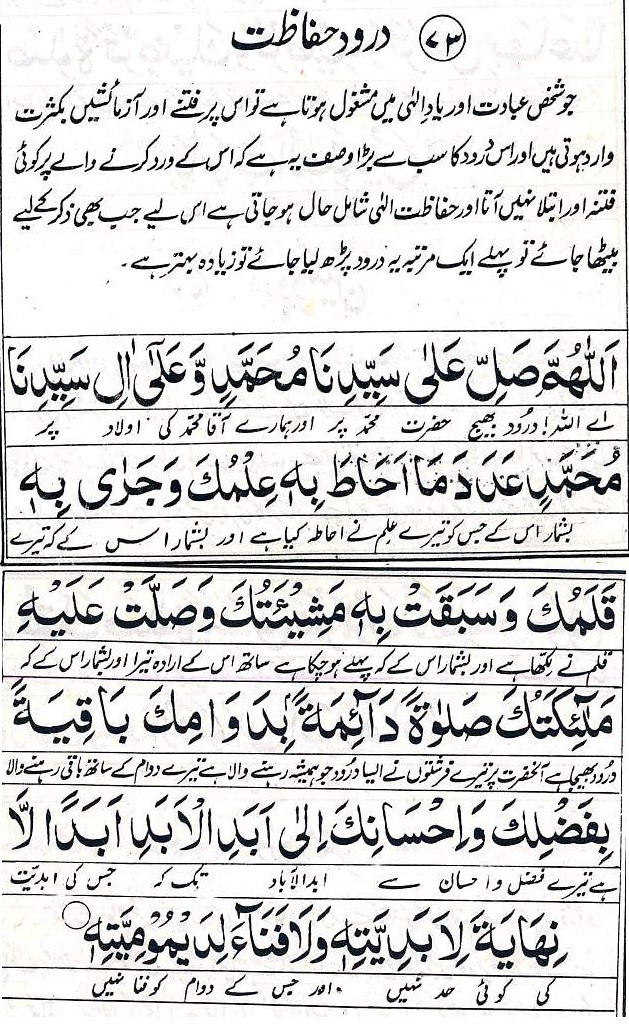 ۷۳ درود حفاظت
جو شخص عبادت اور یادِ الٰہی میں مشغول ہوتا ہے تو اس پر فتنے اور آزمائشیں بکثرت
وارد ہوتی ہیں اور اس درود کا سب سے بڑا وصف یہ ہے کہ اس کے ورد کرنے والے پر کوئی
فتنہ اور ابتلا نہیں آتا اور حفاظت الٰہی شامل حال ہو جاتی ہے اس لیے جب بھی ذکر کے لیے
بیٹھا جائے تو پہلے ایک مرتبہ یہ درود پڑھ لیا جائے تو زیادہ بہتر ہے۔
اَللّٰهُمَّ صَلِّ عَلٰی سَیِّدِنَا مُحَمَّدٍ وَّعَلٰٓی اٰلِ سَیِّدِنَا
اے اللہ! درود بھیج حضرت محمدؐ پر اور ہمارے آقا محمدؐ کی اولاد پر
مُحَمَّدٍ عَدَدَ مَا اَحَاطَ بِهٖ عِلْمُكَ وَجَرٰی بِهٖ
بشمار اس کے جس کو تیرے علم نے احاطہ کیا ہے اور بشمار اس کے کہ تیرے
قَلَمُكَ وَسَبَقَتْ بِهٖ مَشِیْئَتُكَ وَصَلَّتْ عَلَیْهِ
قلم نے لکھا ہے اور بشمار اس کے کہ پہلے ہو چکا ہے ساتھ اس کے ارادہ تیرا اور بشمار اس کے کہ
مَلٰٓئِكَتُكَ صَلٰوةً دَآئِمَةً بِدَوَامِكَ بَاقِیَةً
درود بھیجا ہے آنحضرت پر تیرے فرشتوں نے ایسا درود جو ہمیشہ رہنے والا ہے تیرے دوام کے ساتھ باقی رہنے والا
بِفَضْلِكَ وَاِحْسَانِكَ اِلٰی اَبَدِ الْاَبَدِ اَبَدًا لَّا
ہے تیرے فضل و احسان سے ابدالآباد تک کہ جس کی ابدیّت
نِهَایَةَ لِاَبَدِیَّتِهٖ وَلَا فَنَآءَ لِدَیْمُوْمِیَّتِهٖ
کی کوئی حد نہیں اور جس کے دوام کو فنا نہیں